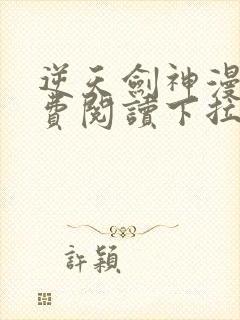 逆天劍神漫
費閱讀下拉
許穎